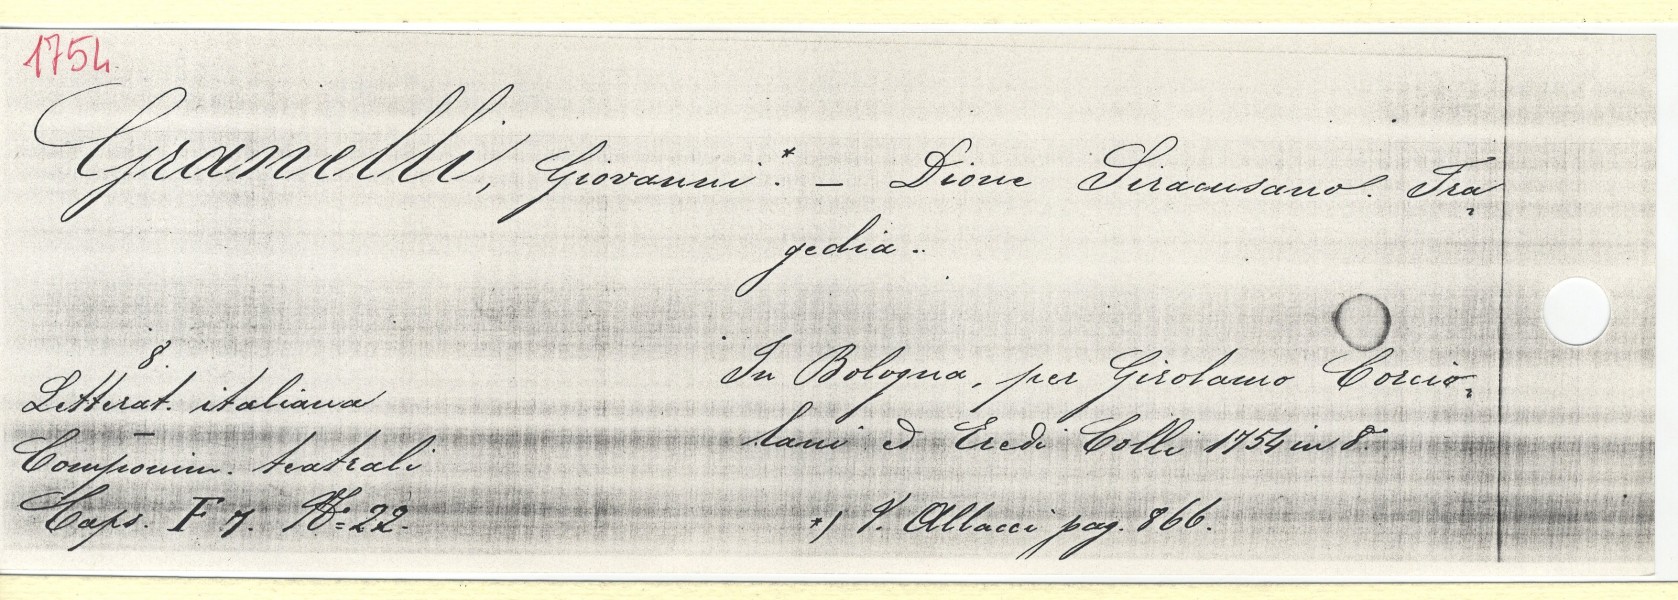 1754
Granelli, Giovanni.* – Dione Siracusano. Tra
gedia.
8.
Letterat. italiana
Componim. teatrali
Caps. F 7. N.° 22.
In Bologna, per Girolamo Corcio
lani ed Eredi Colli 1754 in 8.°
*) V. Allacci pag. 866.